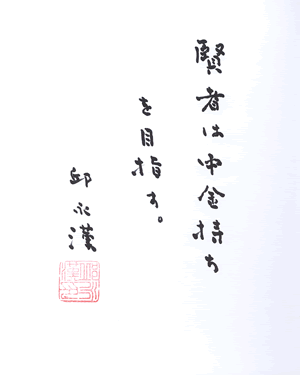 賢者は中金持ち
を目指す。
邱永漢